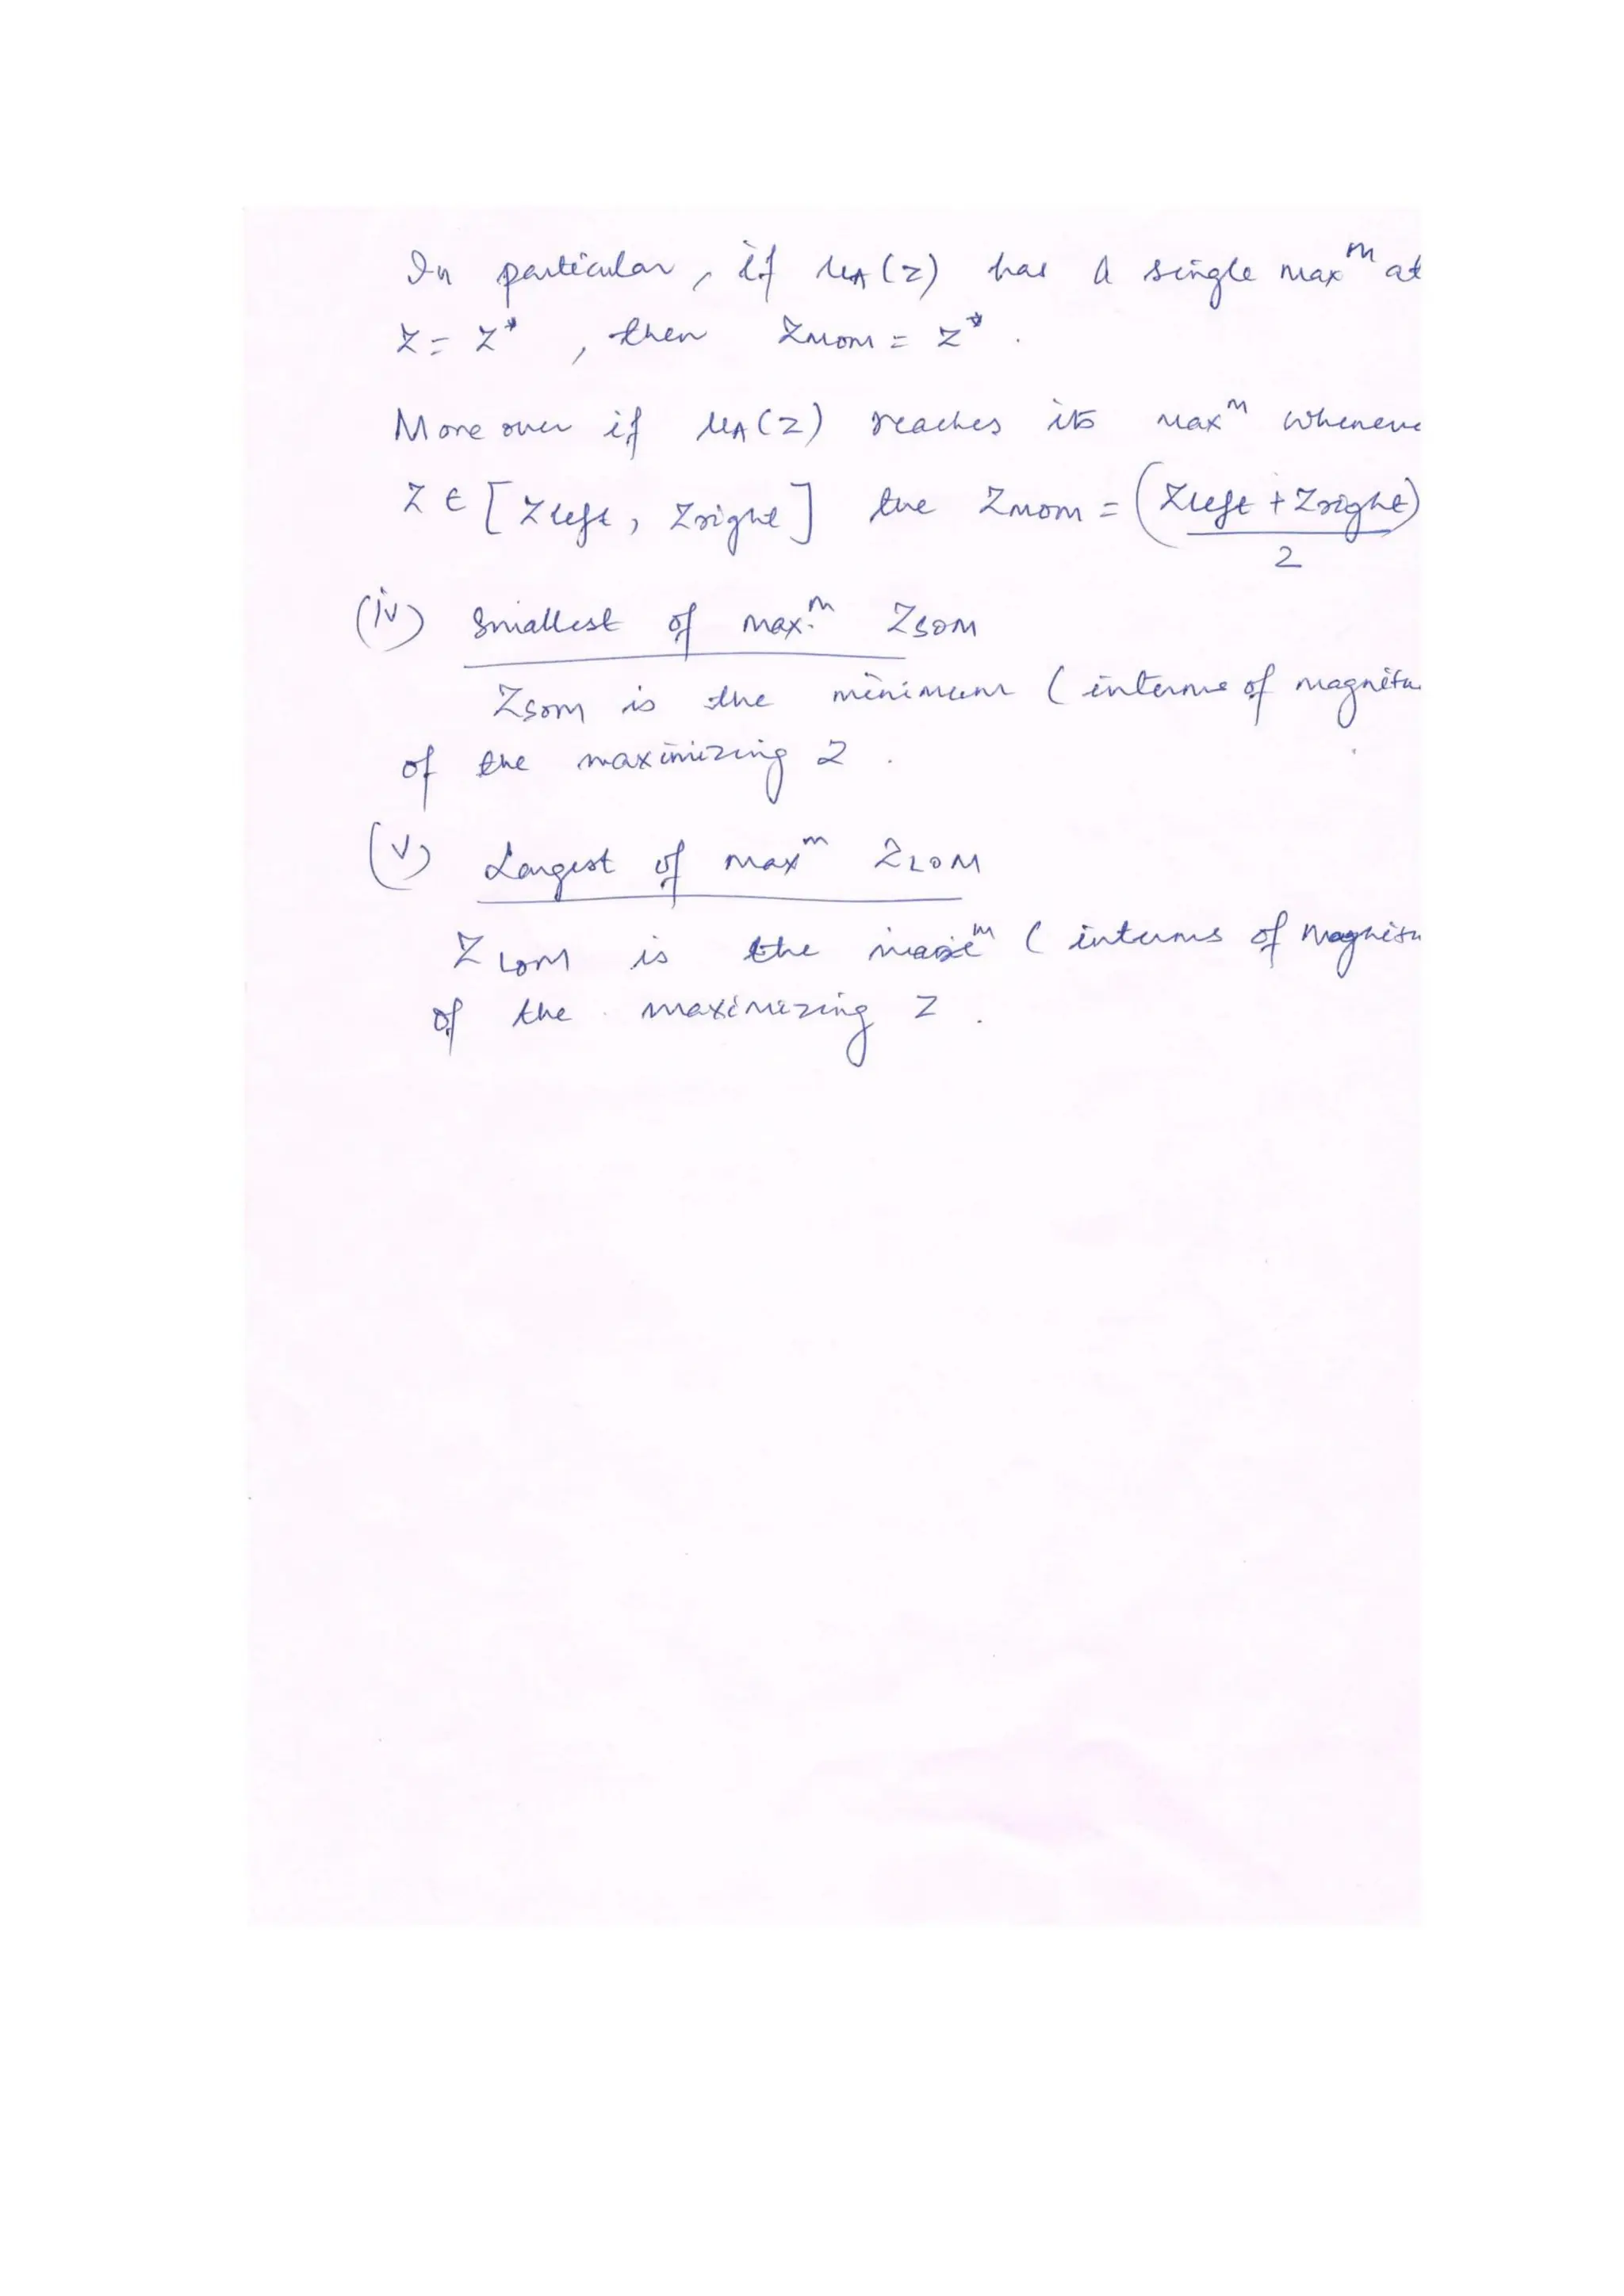 In particular, if μA(z) has a single maxᵐ at
Z = Z* , then ZMOM = Z* .
More over if μA(z) reaches its maxᵐ wheneve
Z ∈ [Zleft, Zright] the ZMOM = (Zleft + Zright)
2
(iv) Smallest of max.ᵐ ZSOM
ZSOM is the minimum ( interms of magnitu
of the maximizing Z .
(v) Largest of maxᵐ ZLOM
ZLOM is the maxiᵐ ( interms of Magnitu
of the maximizing Z .